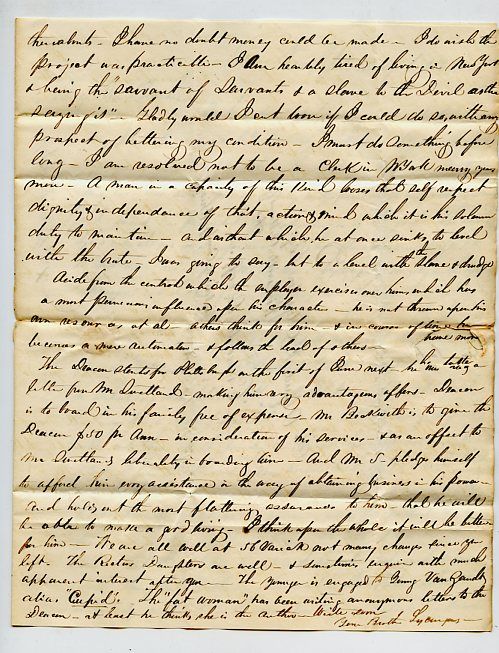 thereabouts - I have no doubt money could be made - I do wish the
project was practicable - I am heartily tired of living in New York
& being the "servant of Servants & a slave to the Devil as the
saying is" - Gladly would I cut loose if I could do so, with any
prospect of bettering my condition - I must do something before
long - I am resolved not to be a Clerk in N York many years
more - A man in a capacity of this kind loses that self respect
dignity & independance of that, action & mind which it is his solemn
duty to maintain - and without which he at once sinks to level
with the brute - I was going to say - but to a level with the slave & drudge
Aside from the control which the employer exercises over him, which has
a most pernicious influence upon his character - he is not thrown upon his
own resources at all - others thinks for him - & in courses of time he
becomes a mere automaton - & follows the lead of others
The Deacon starts for Plattsburgh on the first of June next - he has lately a
letter from Mr - making him very advantageous offers - Deacon
is to board in his family free of expense - Mr is to give the
Deacon $50 pr Ann - in consideration of his services - & as an offset to
Mr liberality in boarding him - And Mr S. pledges himself
to afford him every assistance in the way of obtaining business in his power -
and holds out the most flattering assurances to him - that he will
be able to make a good living - I think upon the whole it will be better
for him - We are all well at 56 Varick not many changes since you
left. The Rectors Daughters are well - & sometimes enquire with much
apparent interest after you - The younger is engaged to Young Van
alias "Cupid". The "fat woman" has been writing anonymous letters to the
Deacon - at least he thinks she is the author - Write soon
Your Brother Lycurgus -